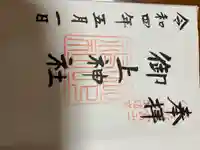 奉拝
御上神社
令和四年五月一日